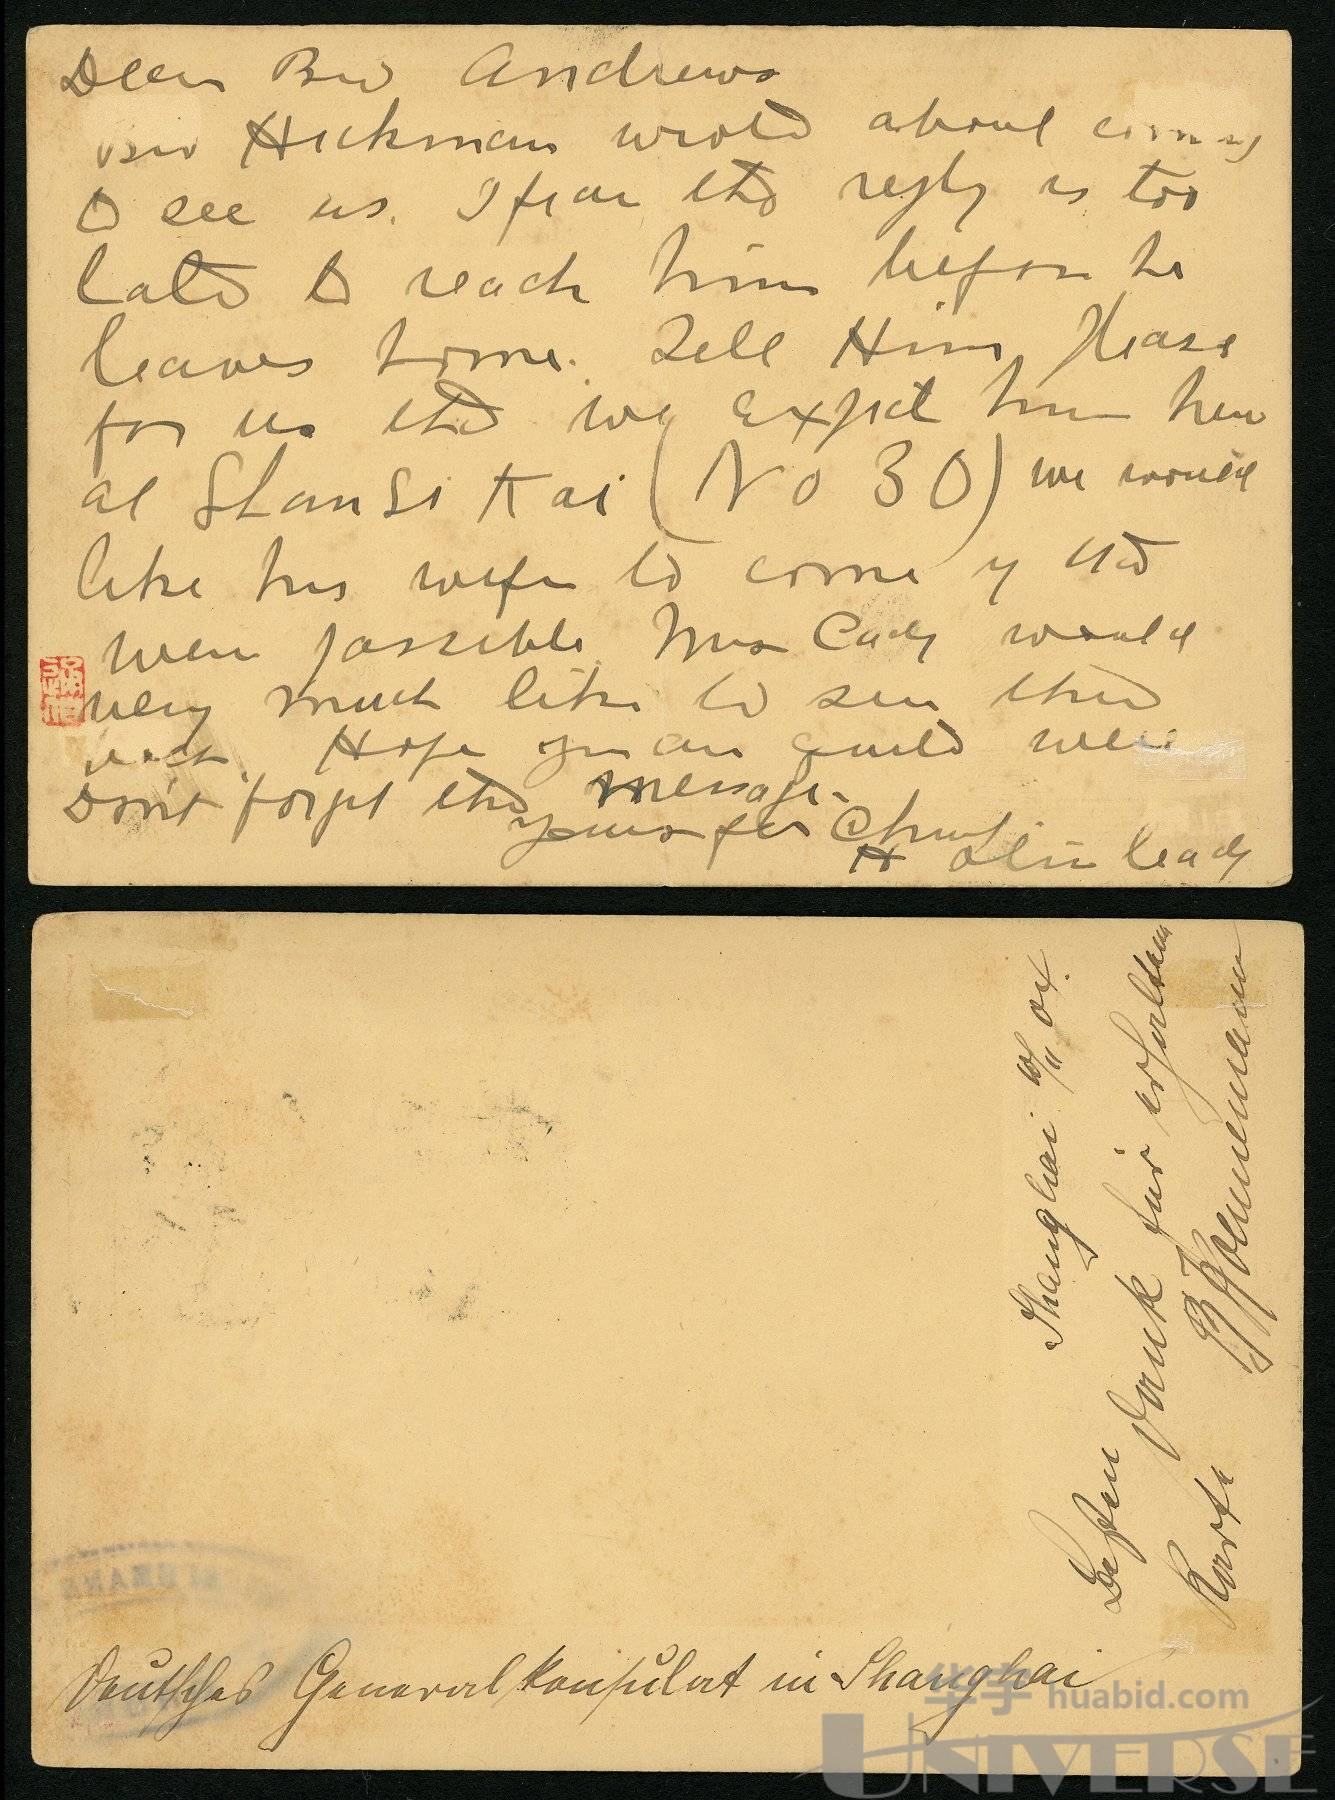 Dear Bro Andrews
Bro Hickman wrote about coming
to see us. I fear the reply is too
late to reach him before he
leaves home. Tell Him, Please
for us that we expect him here
at Shansi Kai (No 30) we would
like his wife to come if it
were possible. Mrs Cady would
very much like to see
Hope you are quite well
Don't forget the message.
yours for Christ
H Olin Cady
Shanghai
Besten Dank für erhaltene
Karte
Deutsches Generalkonsulat in Shanghai
华宇 huabid.com
UNIVERSE